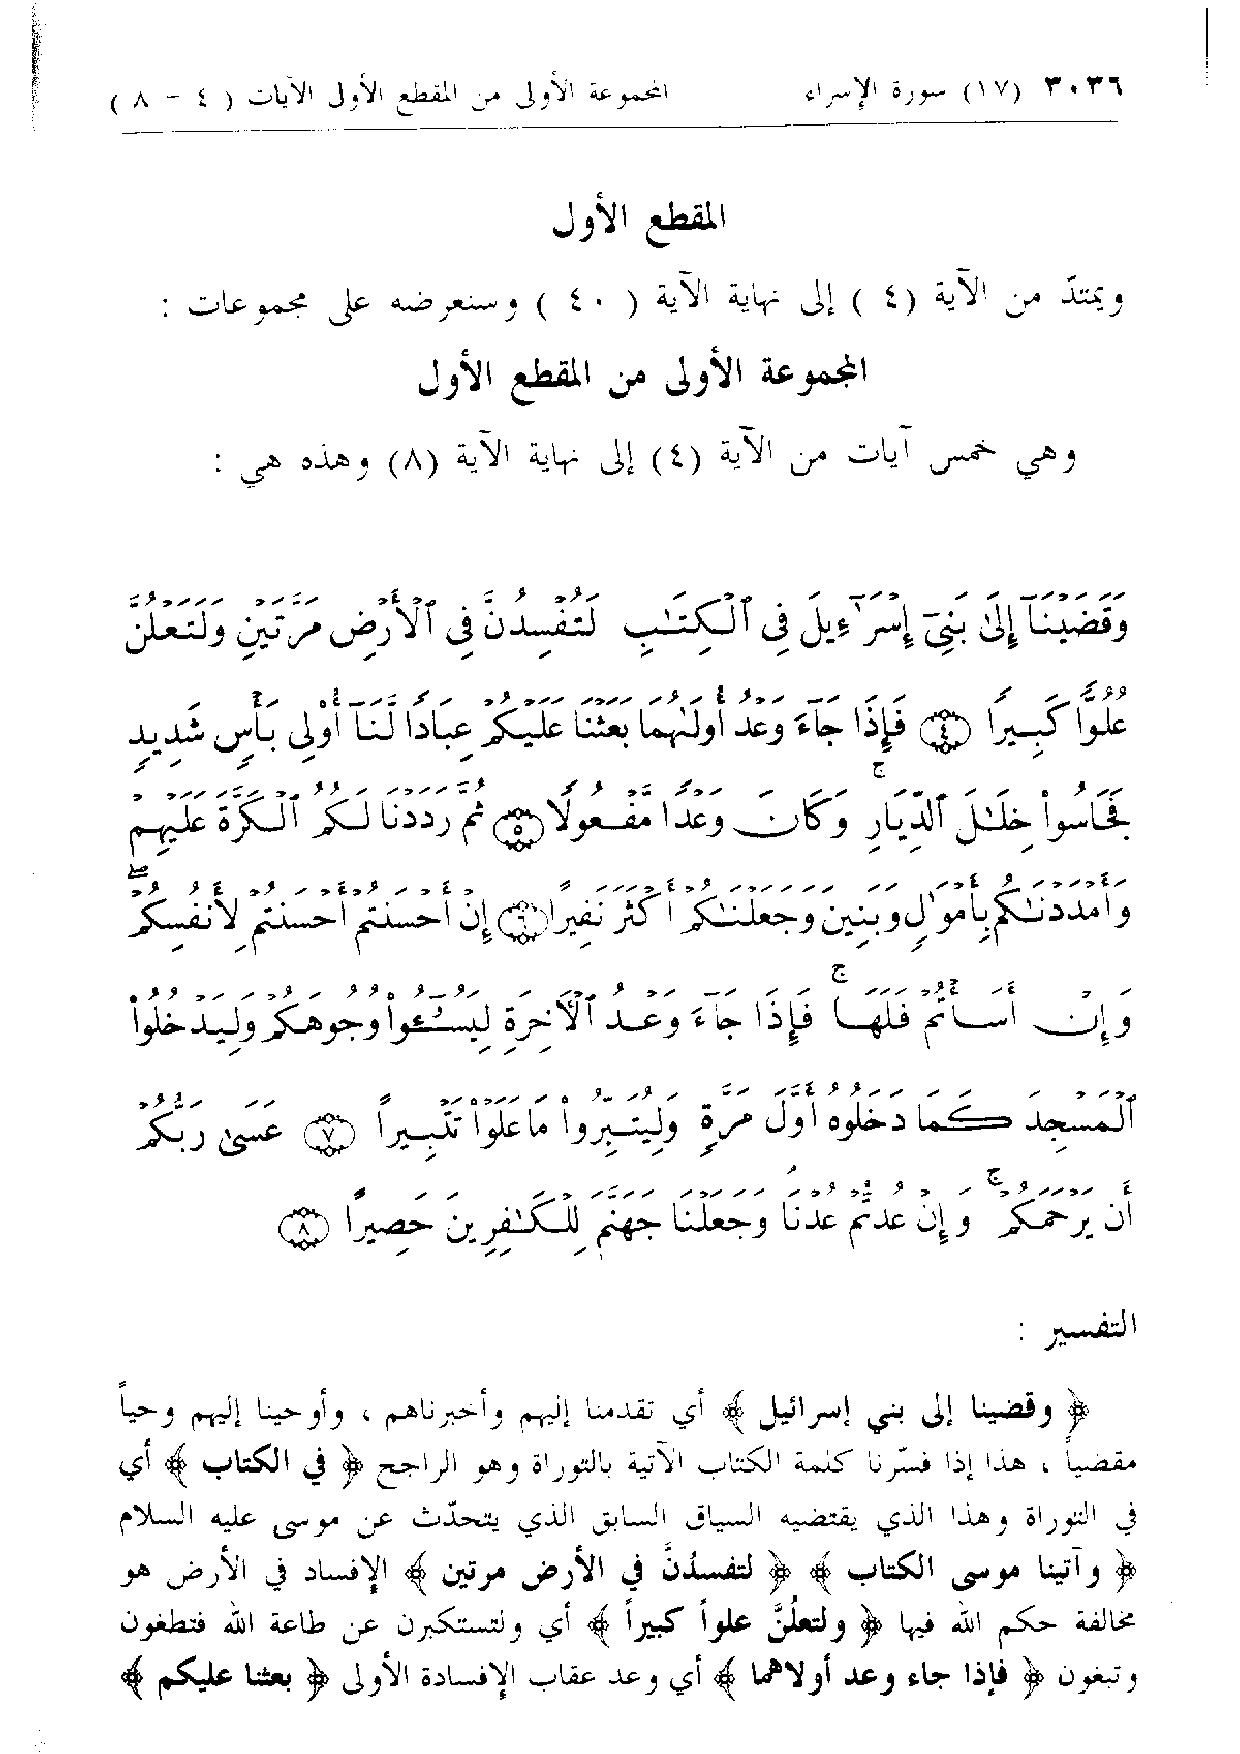 ٣٠٣٦ (١٧) سورة الإسراء المجموعة الأولى من المقطع الأول الآيات ( ٤ - ٨ )
المقطع الأول
ويمتدّ من الآية (٤) إلى نهاية الآية ( ٤٠ ) وسنعرضه على مجموعات :
المجموعة الأولى من المقطع الأول
وهي خمس آيات من الآية (٤) إلى نهاية الآية (٨) وهذه هي :
وَقَضَيْنَآ إِلَىٰ بَنِىٓ إِسْرَٰٓءِيلَ فِى ٱلْكِتَـٰبِ لَتُفْسِدُنَّ فِى ٱلْأَرْضِ مَرَّتَيْنِ وَلَتَعْلُنَّ
عُلُوًّا كَبِيرًا ﴿٤﴾ فَإِذَا جَآءَ وَعْدُ أُولَىٰهُمَا بَعَثْنَا عَلَيْكُمْ عِبَادًا لَّنَآ أُو۟لِى بَأْسٍ شَدِيدٍ
فَجَاسُوا۟ خِلَـٰلَ ٱلدِّيَارِ ۚ وَكَانَ وَعْدًا مَّفْعُولًا ﴿٥﴾ ثُمَّ رَدَدْنَا لَكُمُ ٱلْكَرَّةَ عَلَيْهِمْ
وَأَمْدَدْنَـٰكُم بِأَمْوَٰلٍ وَبَنِينَ وَجَعَلْنَـٰكُمْ أَكْثَرَ نَفِيرًا ﴿٦﴾ إِنْ أَحْسَنتُمْ أَحْسَنتُمْ لِأَنفُسِكُمْ ۖ
وَإِنْ أَسَأْتُمْ فَلَهَا ۚ فَإِذَا جَآءَ وَعْدُ ٱلْـَٔاخِرَةِ لِيَسُـۥٓـُٔوا۟ وُجُوهَكُمْ وَلِيَدْخُلُوا۟
ٱلْمَسْجِدَ كَمَا دَخَلُوهُ أَوَّلَ مَرَّةٍ وَلِيُتَبِّرُوا۟ مَا عَلَوْا۟ تَتْبِيرًا ﴿٧﴾ عَسَىٰ رَبُّكُمْ
أَن يَرْحَمَكُمْ ۚ وَإِنْ عُدتُّمْ عُدْنَا ۘ وَجَعَلْنَا جَهَنَّمَ لِلْكَـٰفِرِينَ حَصِيرًا ﴿٨﴾
التفسير :
﴿ وقضينا إلى بني إسرائيل ﴾ أي تقدمنا إليهم وأخبرناهم ، وأوحينا إليهم وحياً
مقضياً ، هذا إذا فسّرنا كلمة الكتاب الآتية بالتوراة وهو الراجح ﴿ في الكتاب ﴾ أي
في التوراة وهذا الذي يقتضيه السياق السابق الذي يتحدّث عن موسى عليه السلام
﴿ وآتينا موسى الكتاب ﴾ ﴿ لتفسدُنَّ في الأرض مرتين ﴾ الإفساد في الأرض هو
مخالفة حكم الله فيها ﴿ ولتعلُنَّ علواً كبيراً ﴾ أي ولتستكبرن عن طاعة الله فتطغون
وتبغون ﴿ فإذا جاء وعد أولاهما ﴾ أي وعد عقاب الإفسادة الأولى ﴿ بعثنا عليكم ﴾